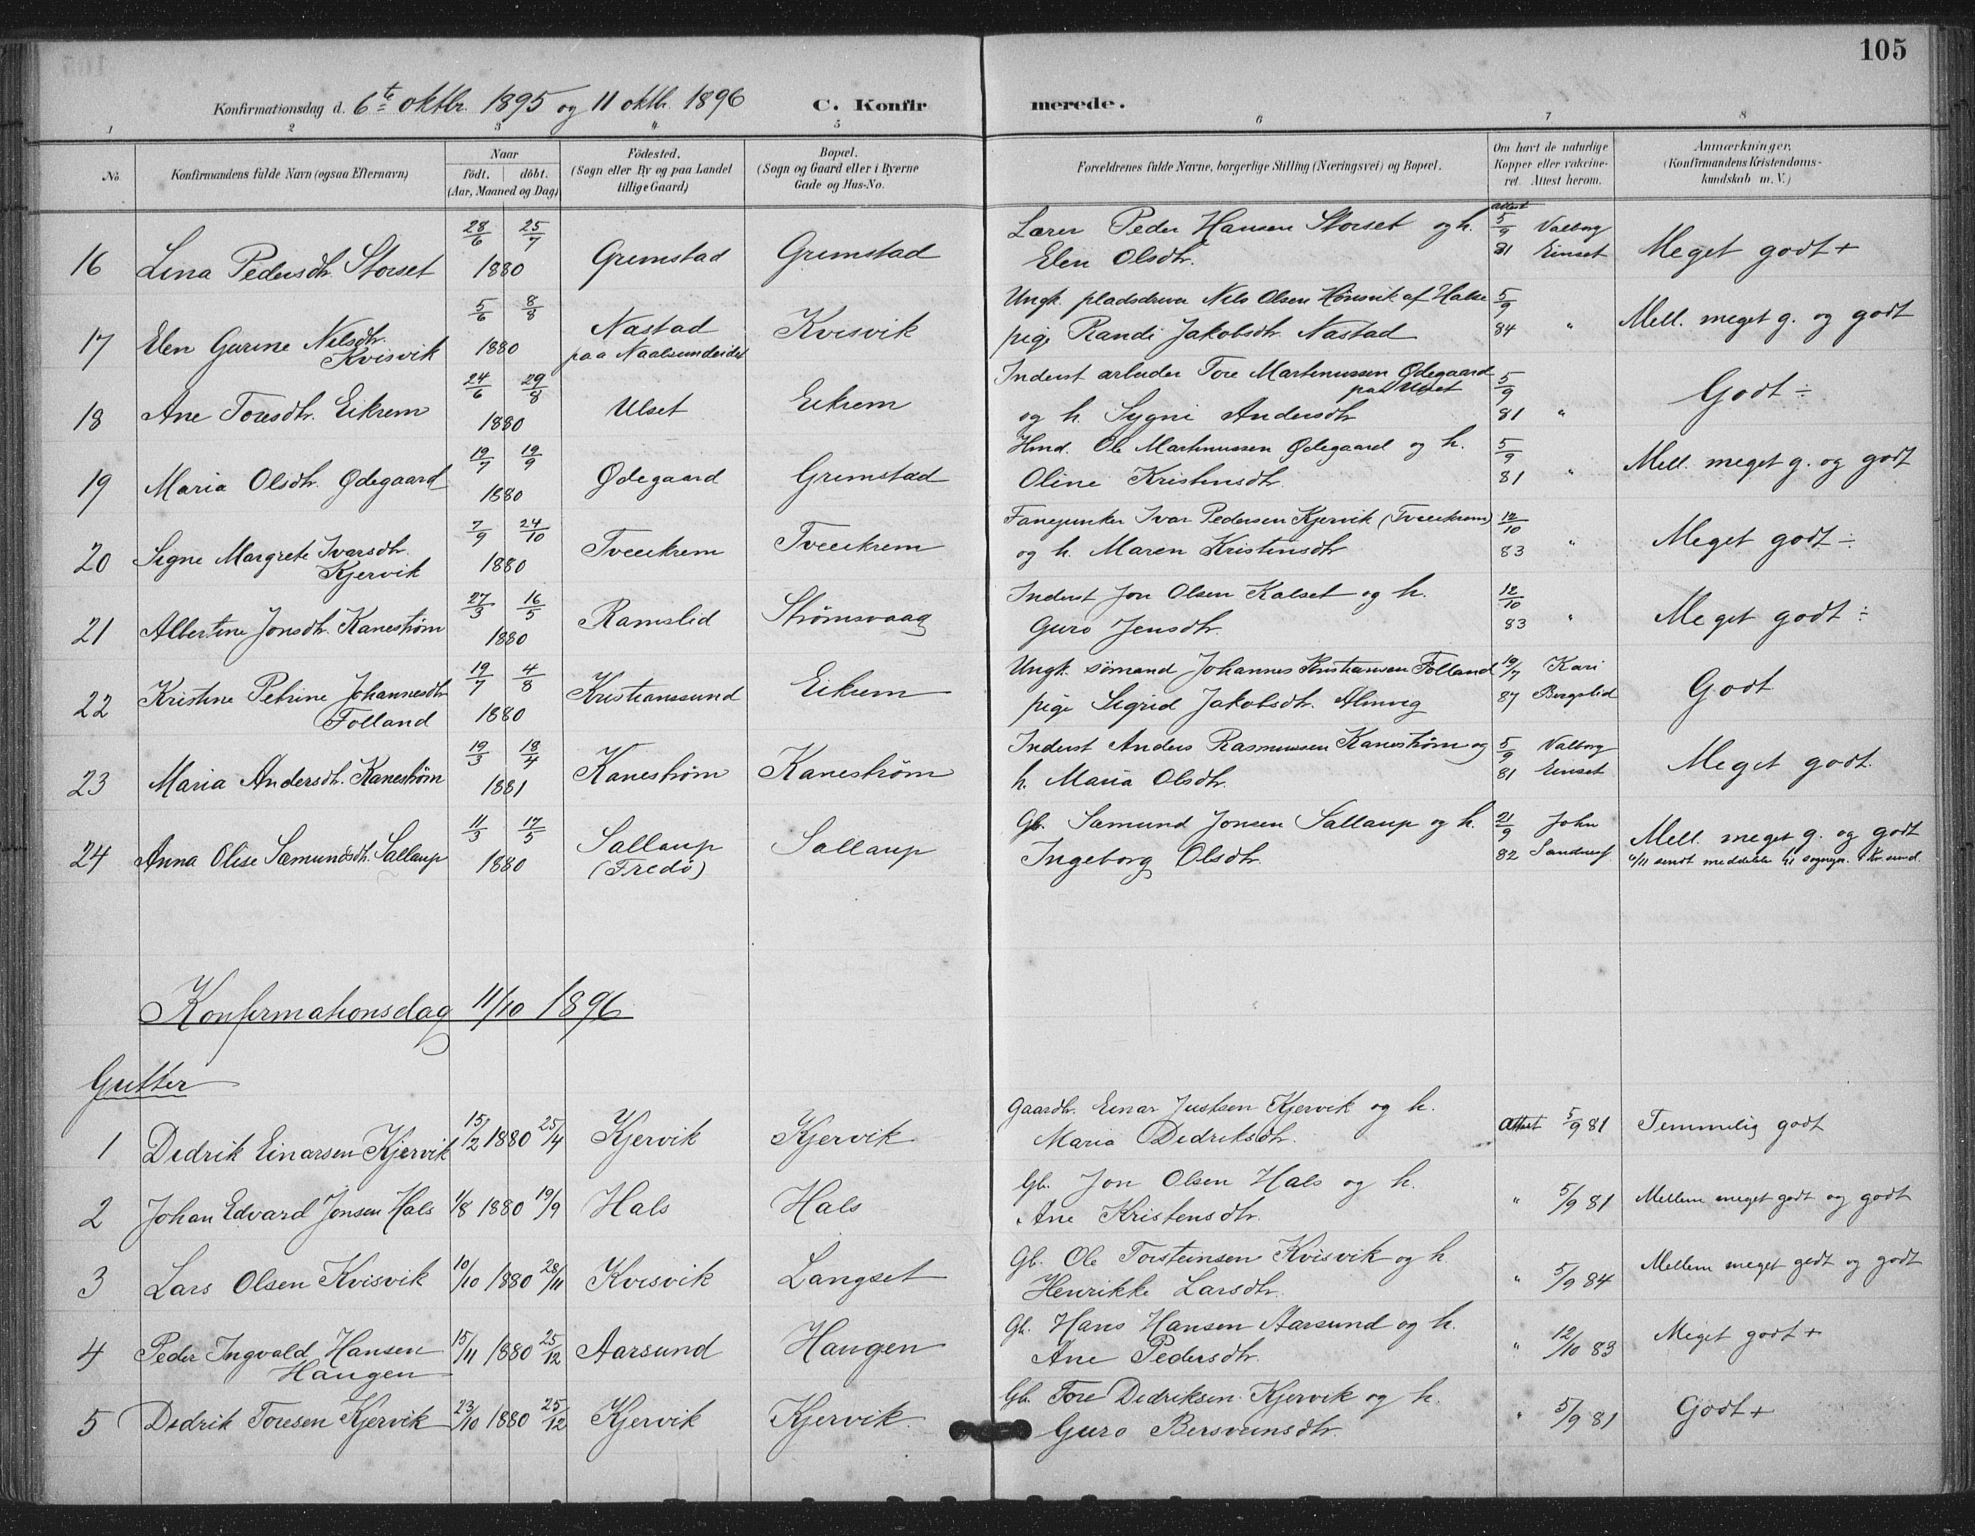 105
Konfirmationsdag d. 6te oktbr. 1895 og 11 oktb. 1896 C. Konfirmerede.
1 2 3 4 5 6 7 8
No. Konfirmandens fulde Navn (ogsaa Efternavn) Naar født. døbt. (Aar, Maaned og Dag) Fødested. (Sogn eller By og paa Landet tillige Gaard) Bopæl. (Sogn og Gaard eller i Byerne Gade og Hus-No. Forældrenes fulde Navne, borgerlige Stilling (Næringsvei) og Bopæl. Om havt de naturlige Kopper eller vakcineret. Attest herom. Anmærkninger, (Konfirmandens Kristendomskundskab m. V.)
16 Lina Pedersdtr. Storset 28/6 25/7 1880 Gremstad Gremstad Lærer Peder Hansen Storset og h. Elen Olsdtr. Attest 5/9 81 Valborg Einset Meget godt +
17 Elen Gurine Nilsdtr. Kvisvik 5/6 8/8 1880 Nastad paa Naalsundeidet Kvisvik Ungk. pladsdreng Nils Olsen Hønsvik af Halse pige Randi Jakobsdtr. Nastad 5/9 84 " Mell. meget g. og godt
18 Ane Toresdtr. Eikrem 24/6 29/8 1880 Ulset Eikrem Inderst arbeider Tore Martinussen Ødegaard paa Ulset og h. Sygni Andersdtr 5/9 81 " Godt ÷
19 Maria Olsdtr. Ødegaard 19/7 19/9 1880 Ødegaard Gremstad Hmd. Ole Martinussen Ødegaard og h. Oline Kristensdtr. 5/9 81 " Mell. meget g. og godt
20 Signe Margrete Ivarsdtr. Kjervik 7/9 24/10 1880 Tveeikrem Tveeikrem Fanejunker Ivar Pedersen Kjervik (Tveeikrem) og h. Maren Kristensdtr 12/10 83 " Meget godt ÷
21 Albertine Jonsdtr. Kanestrøm 27/3 16/5 1880 Ramslid Strømsvaag Inderst Jon Olsen Kalset og h. Guro Jensdtr. 12/10 83 " Meget godt ÷
22 Kristine Petrine Johannesdtr Folland 19/7 4/8 1880 Kristianssund Eikrem Ungk. sømand Johannes Kristiansen Folland pige Sigrid Jakobsdtr. Almvig 19/7 87 Kari Bergslid Godt
23 Maria Andersdtr. Kanestrøm 19/3 18/4 1881 Kanestrøm Kanestrøm Inderst Anders Rasmussen Kanestrøm og h. Maria Olsdtr. 5/9 81 Valborg Einset Meget godt.
24 Anna Olise Samundsdtr. Sallaup 11/3 17/5 1880 Sallaup (Fredø) Sallaup Gb. Samund Jonsen Sallaup og h. Ingeborg Olsdtr. 21/9 82 John Mell. meget g. og godt
Konfirmationsdag 11/10 1896
Gutter
1 Dedrik Einarsen Kjervik 15/2 1880 25/4 Kjervik Kjervik Gaardbr. Einar Justsen Kjervik og h. Maria Dedriksdtr. Attest 5/9 81 Temmelig godt
2 Johan Edvard Jonsen Hals 1/8 1880 19/9 Hals Hals Gb. Jon Olsen Hals og h. Ane Kristensdtr. " 5/9 81 Mellem meget godt og godt
3 Lars Olsen Kvisvik 10/10 1880 28/11 Kvisvik Langset Gb. Ole Torsteinsen Kvisvik og h Henrikke Larsdtr. " 5/9 84 Mellem meget godt og godt
4 Peder Ingvald Hansen Haugen 15/11 1880 25/12 Aarsund Haugen Gb. Hans Hansen Aarsund og h. Ane Pedersdtr. " 12/10 83 Meget godt +
5 Dedrik Toresen Kjervik 23/10 1880 25/12 Kjervik Kjervik Gb. Tore Dedriksen Kjervik og h. Guro Bersveinsdtr. " 5/9 81 Godt +